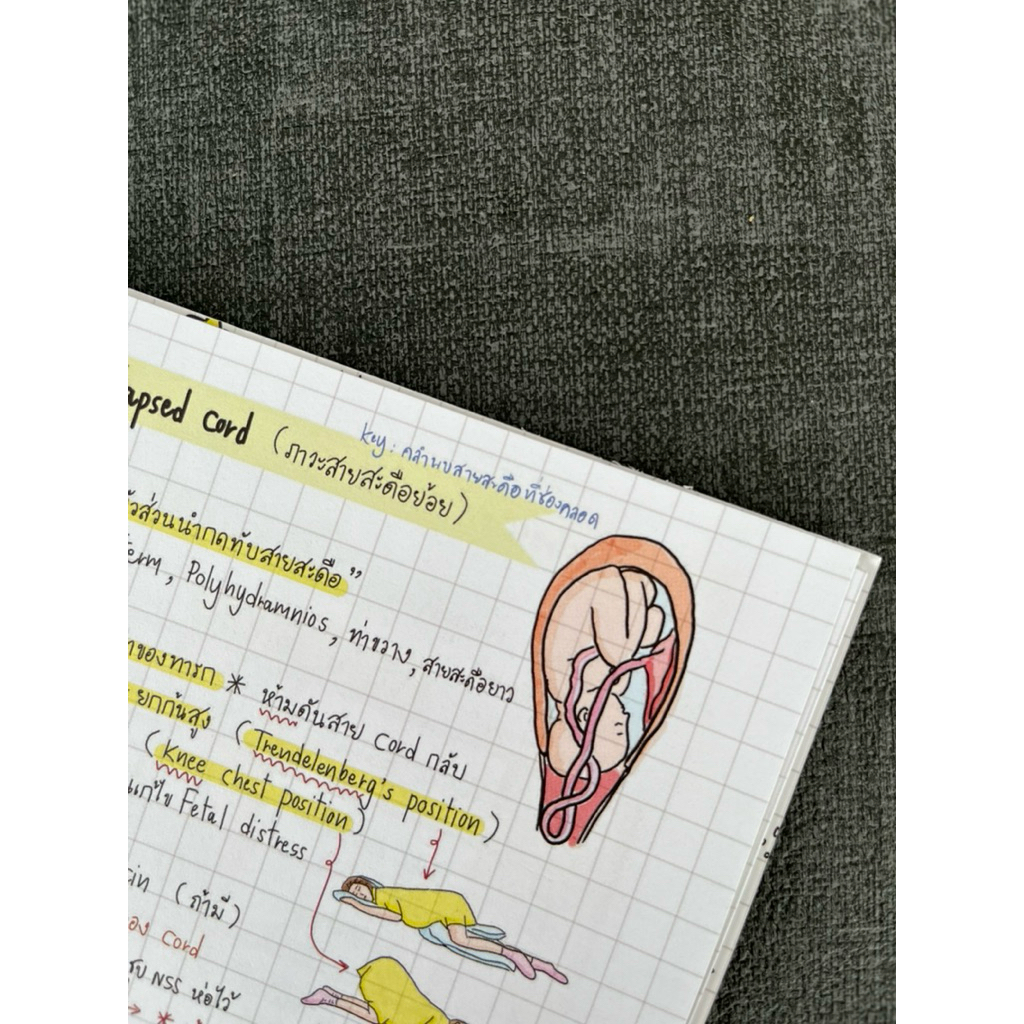 apsed Cord (ภาวะสายสะดือย้อย)
key : คลำพบสายสะดือที่ช่องคลอด
ส่วนนำกดทับสายสะดือ”
erm, Polyhydramnios, ท่าขวาง, สายสะดือยาว
ของทารก * ห้ามดันสาย Cord กลับ
ยกก้นสูง (Trendelenberg's position)
(knee chest position)
แก้ไข Fetal distress
cin (ถ้ามี)
ของ Cord
ชุบ NSS ห่อไว้